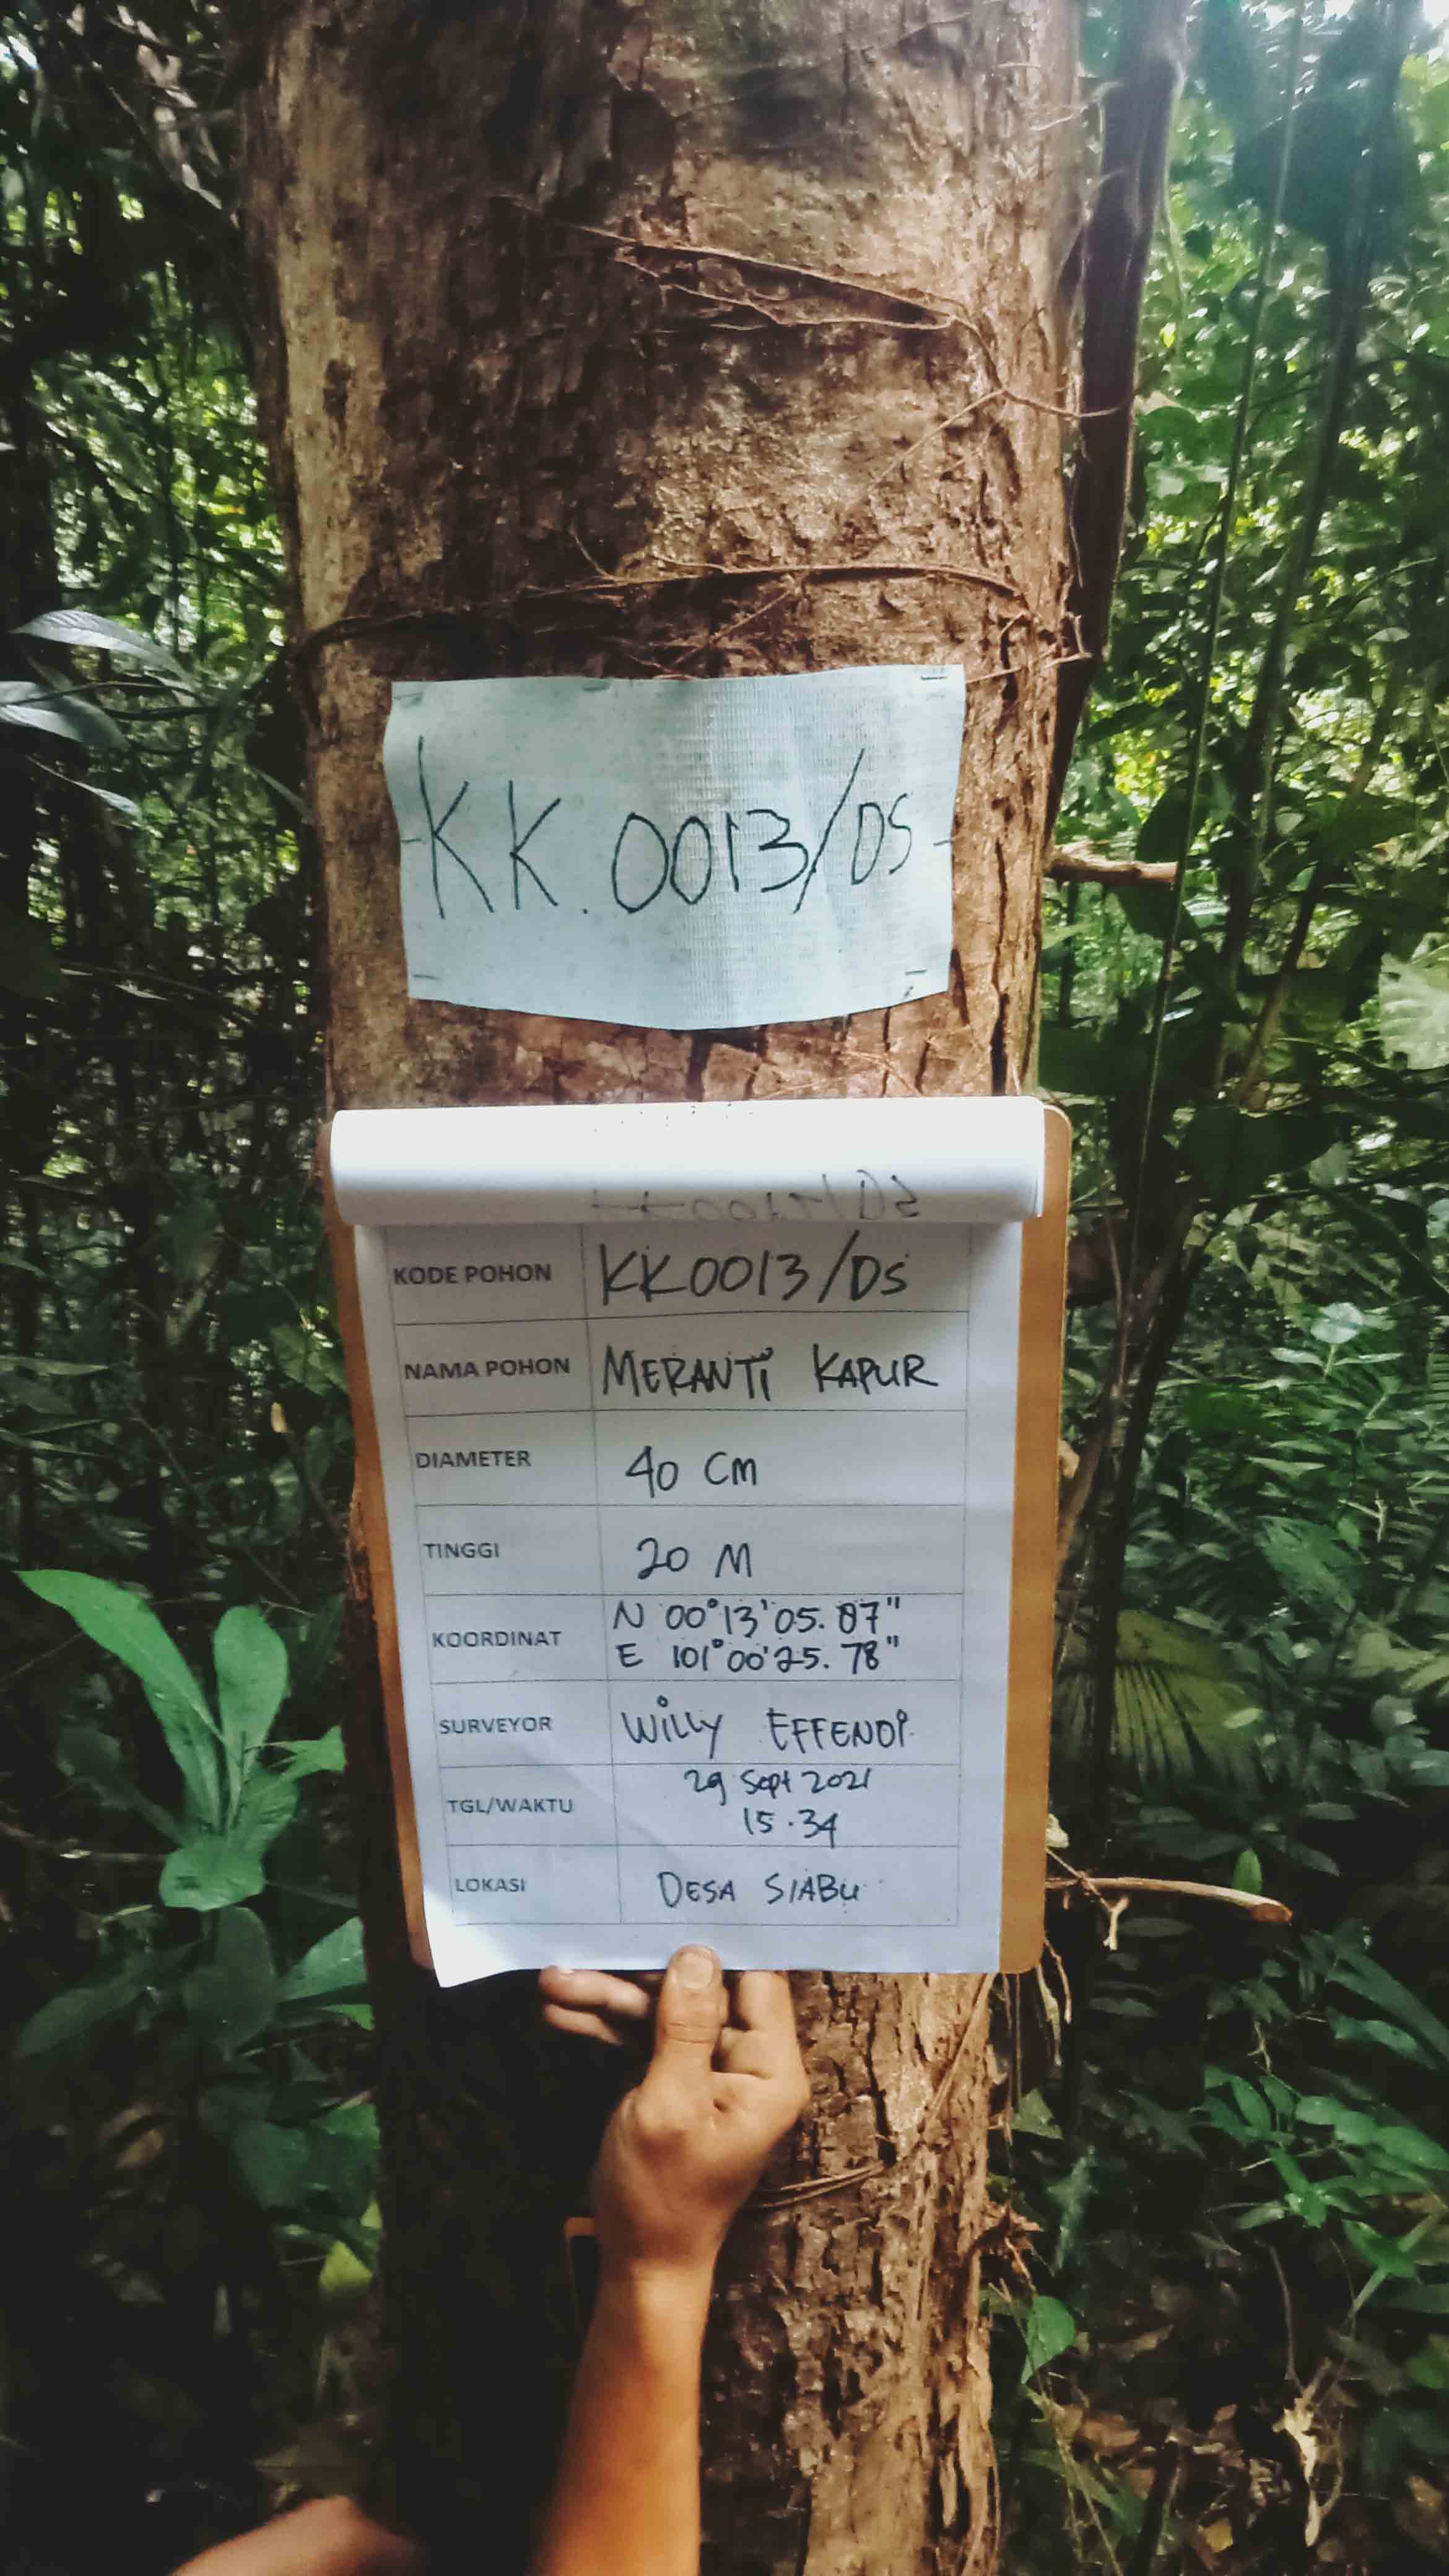 KK.0013/DS
KODE POHON KK0013/DS
NAMA POHON MERANTI KAPUR
DIAMETER 40 CM
TINGGI 20 M
KOORDINAT N 00°13'05.07"
E 101°00'25.78"
SURVEYOR WILLY EFFENDI
TGL/WAKTU 29 Sept 2021
15.34
LOKASI DESA SIABU